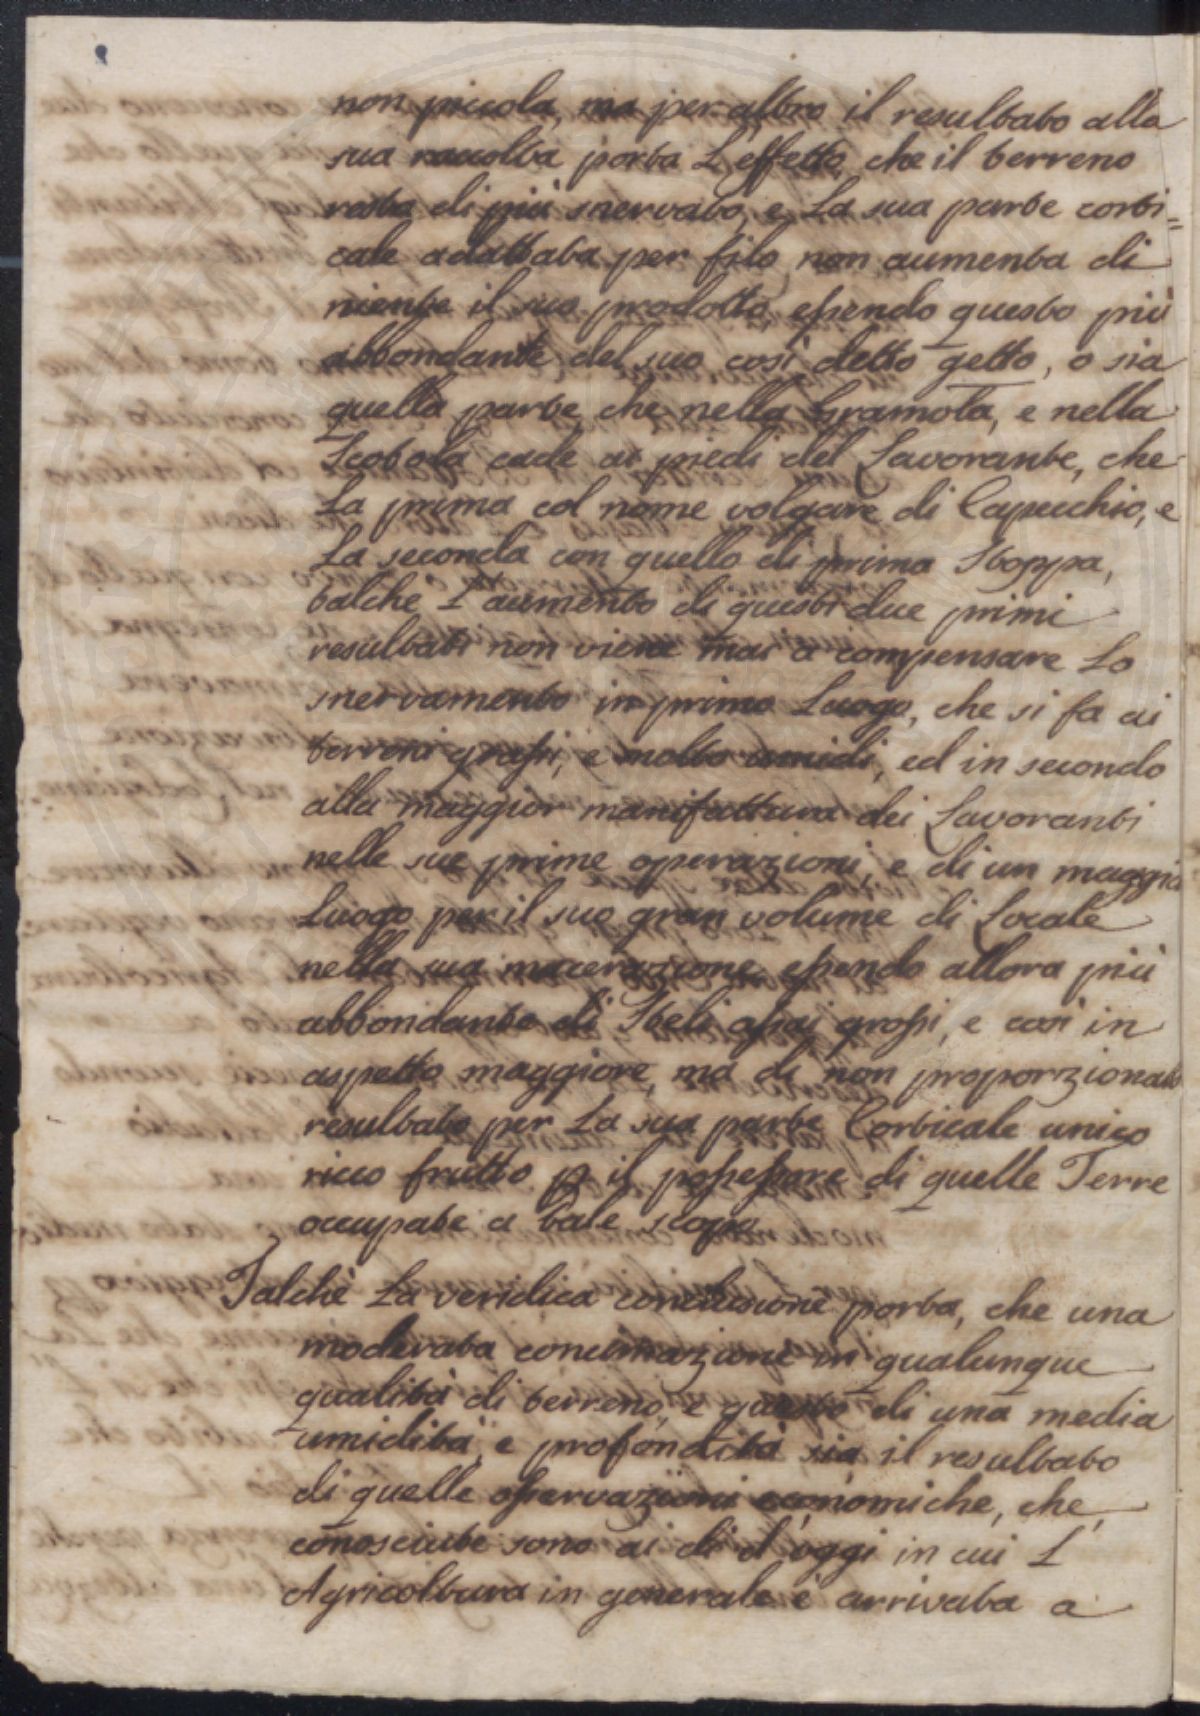 non piccola, ma per altro il resultato alla
sua raccolta porta L'effetto, che il terreno
resta di più snervato, e La sua parte corti=
cale adattata per filo, non aumenta di
niente il suo prodotto, essendo questo più
abbondante del suo così detto getto, o sia
quella parte, che nella Gramola, e nella
Scotola cade ai piedi del Lavorante, che
La prima col nome volgare di Capecchio, e
La seconda con quello di prima Stoppa,
talche L'aumento di questi due primi
resultati non viene mai a compensare Lo
snervamento in primo Luogo, che si fa ai
terreni grassi, e molto umidi, ed in secondo
alla maggior manifattura dei Lavoranti
nelle sue prime operazioni, e di un maggior
Luogo per il suo gran volume di Locale
nella sua macerazione, essendo allora più
abbondante di Steli assai grossi, e così in
aspetto maggiore, ma di non proporzionato
resultato per La sua parte Corticale unico
ricco frutto p il possessore di quelle Terre
occupate a tale scopo
Talchè La veridica conclusione porta, che una
moderata concimazione in qualunque
qualità di terreno, e questo di una media
umidità, e profondità sia il resultato
di quelle osservazioni economiche, che
conosciute sono ai dì d'oggi in cui L'
Agricoltura in generale è arrivata a